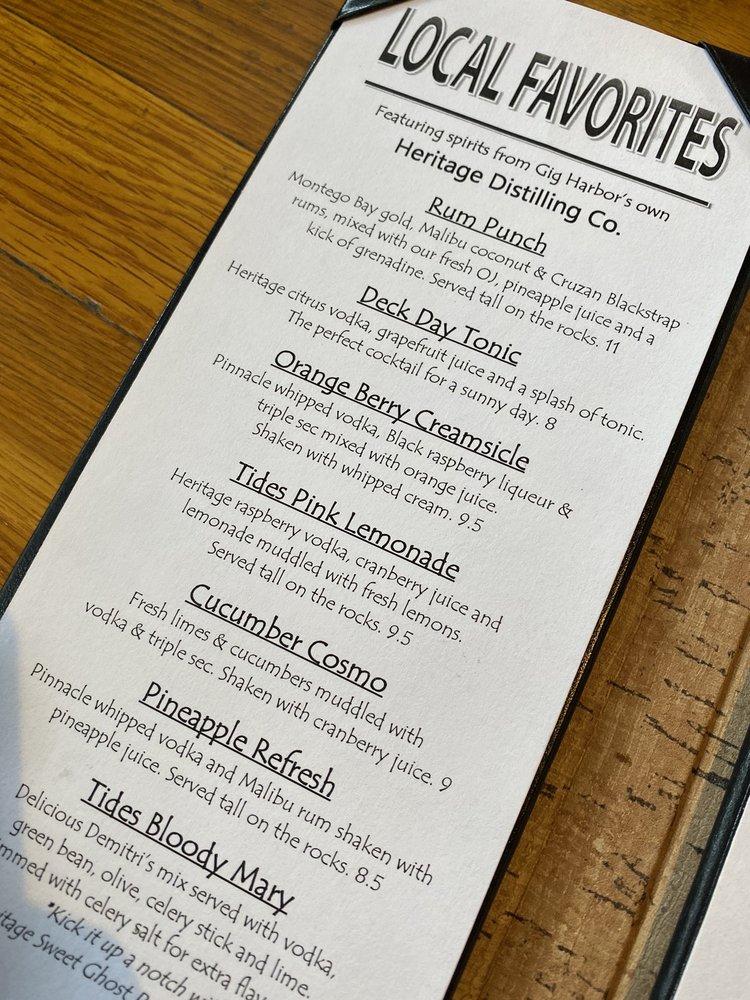 LOCAL FAVORITES
Featuring spirits from Gig Harbor's own
Heritage Distilling Co.
Rum Punch
Montego Bay gold, Malibu coconut & Cruzan Blackstrap
rums, mixed with our fresh OJ, pineapple juice and a
kick of grenadine. Served tall on the rocks. 11
Deck Day Tonic
Heritage citrus vodka, grapefruit juice and a splash of tonic.
The perfect cocktail for a sunny day. 8
Orange Berry Creamsicle
Pinnacle whipped vodka, Black raspberry liqueur &
triple sec mixed with orange juice.
Shaken with whipped cream. 9.5
Tides Pink Lemonade
Heritage raspberry vodka, cranberry juice and
lemonade muddled with fresh lemons.
Served tall on the rocks. 9.5
Cucumber Cosmo
Fresh limes & cucumbers muddled with
vodka & triple sec. Shaken with cranberry juice. 9
Pineapple Refresh
Pinnacle whipped vodka and Malibu rum shaken with
pineapple juice. Served tall on the rocks. 8.5
Tides Bloody Mary
Delicious Demitri's mix served with vodka,
green bean, olive, celery stick and lime.
with celery salt for extra
*Kick it up a notch
Sweet Ghost